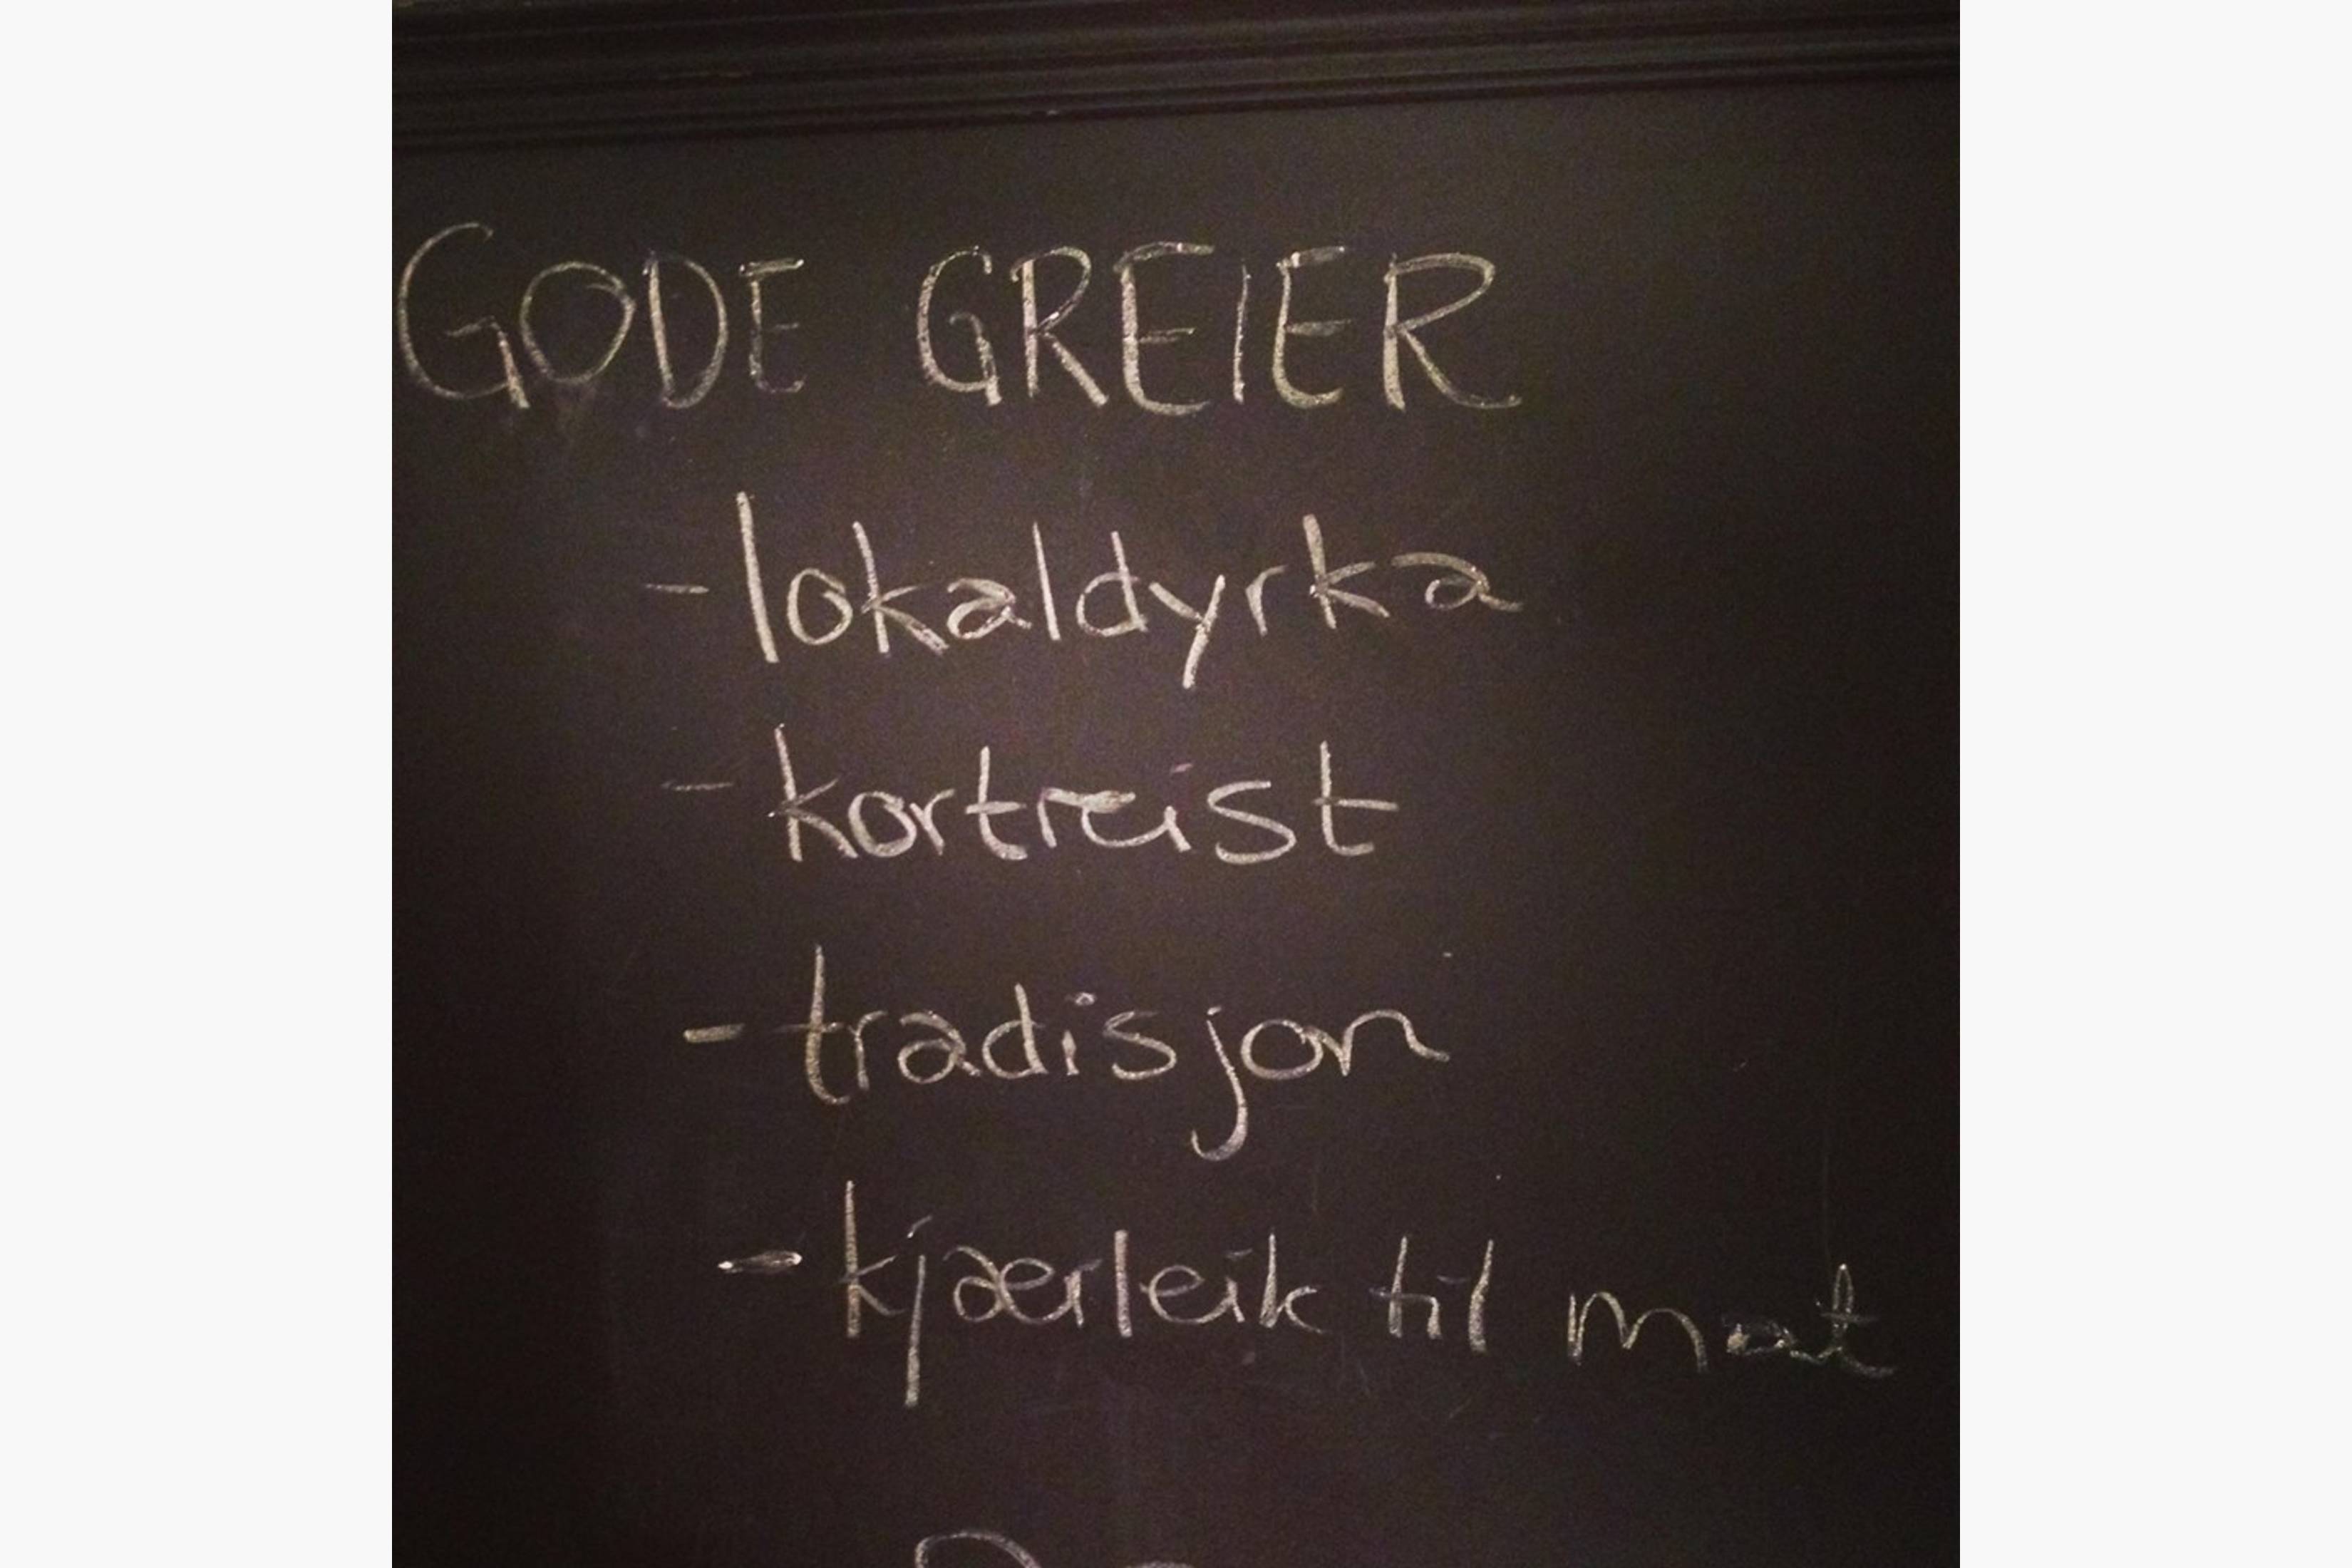 GODE GREIER
- lokaldyrka
- kortreist
- tradisjon
- kjærleik til mat